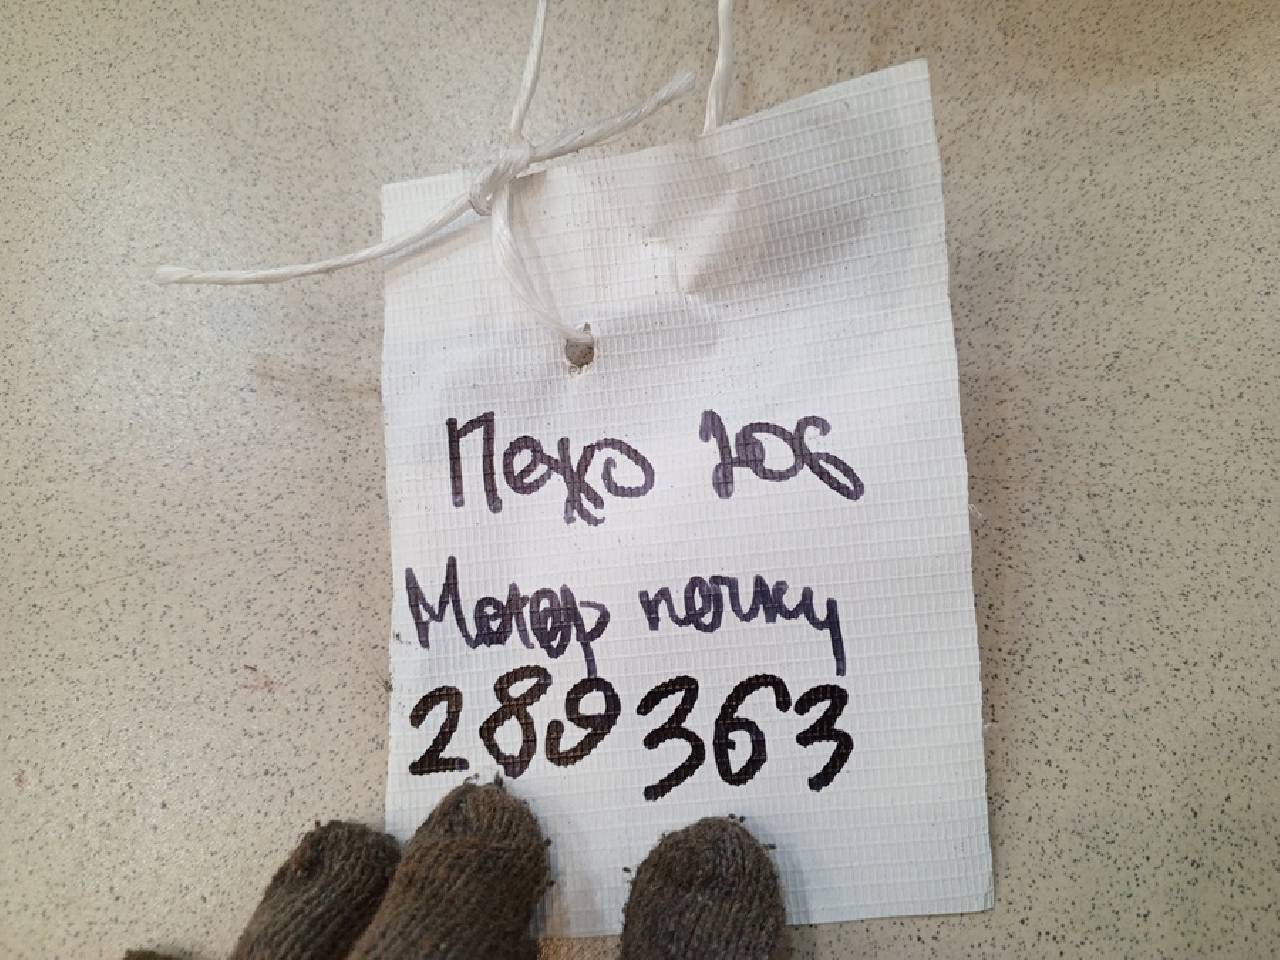 Пежо 206
Мотор печку
289363